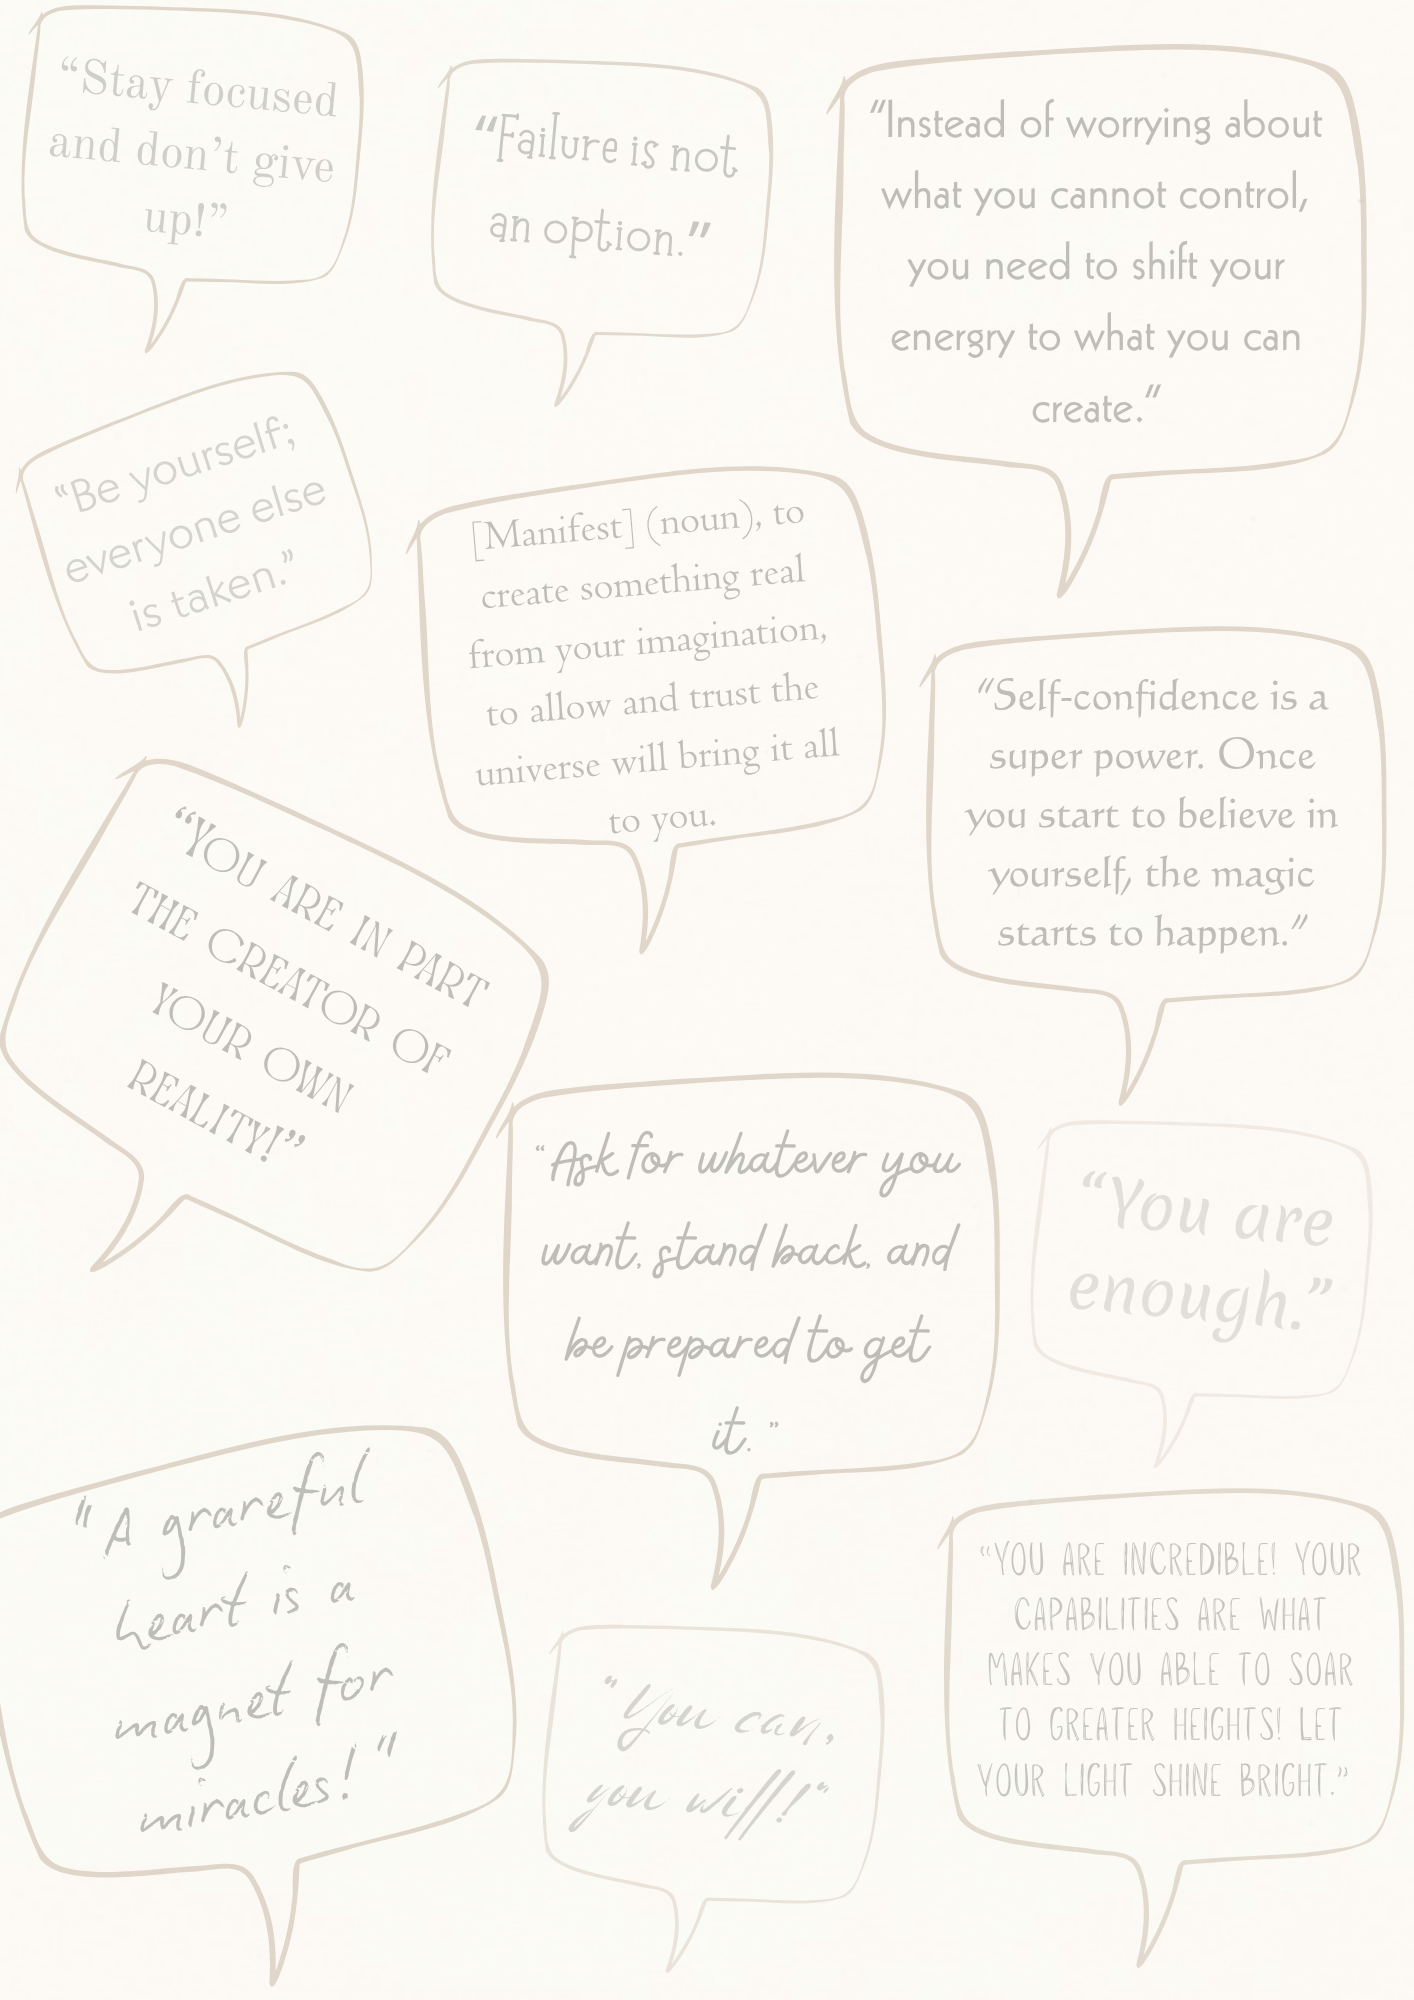 “Stay focused
and don’t give
up!”
“Failure is not
an option.”
“Instead of worrying about
what you cannot control,
you need to shift your
energry to what you can
create.”
“Be yourself;
everyone else
is taken.”
[Manifest] (noun), to
create something real
from your imagination,
to allow and trust the
universe will bring it all
to you.
“Self-confidence is a
super power. Once
you start to believe in
yourself, the magic
starts to happen.”
“YOU ARE IN PART
THE CREATOR OF
YOUR OWN
REALITY!”
“Ask for whatever you
want, stand back, and
be prepared to get
it.”
“You are
enough.”
"A grareful
heart is a
magnet for
miracles!"
“You can,
you will!”
“YOU ARE INCREDIBLE! YOUR
CAPABILITIES ARE WHAT
MAKES YOU ABLE TO SOAR
TO GREATER HEIGHTS! LET
YOUR LIGHT SHINE BRIGHT.”